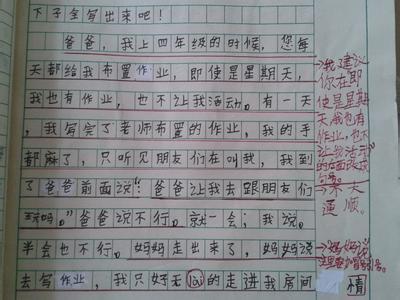 下子全写出来吧！
爸爸，我上四年级的时候，您每
天都给我布置作业，即使是星期天，
我也有作业，也不让我活动。有一天
，我写完了老师布置的作业，我的手
都麻了，只听见朋友们在叫我，我到
了爸爸前面说：“爸爸让我去跟朋友们
玩吗。”爸爸说不行。就一会；我说。
半会也不行。妈妈走出来了，妈妈说
去写作业，我只好无lài的走进我房间
情
我建议
你在即
使是星期
天我也有
作业，也不
让我活动
的后面改成
句号。
不太
通顺。
妈妈说